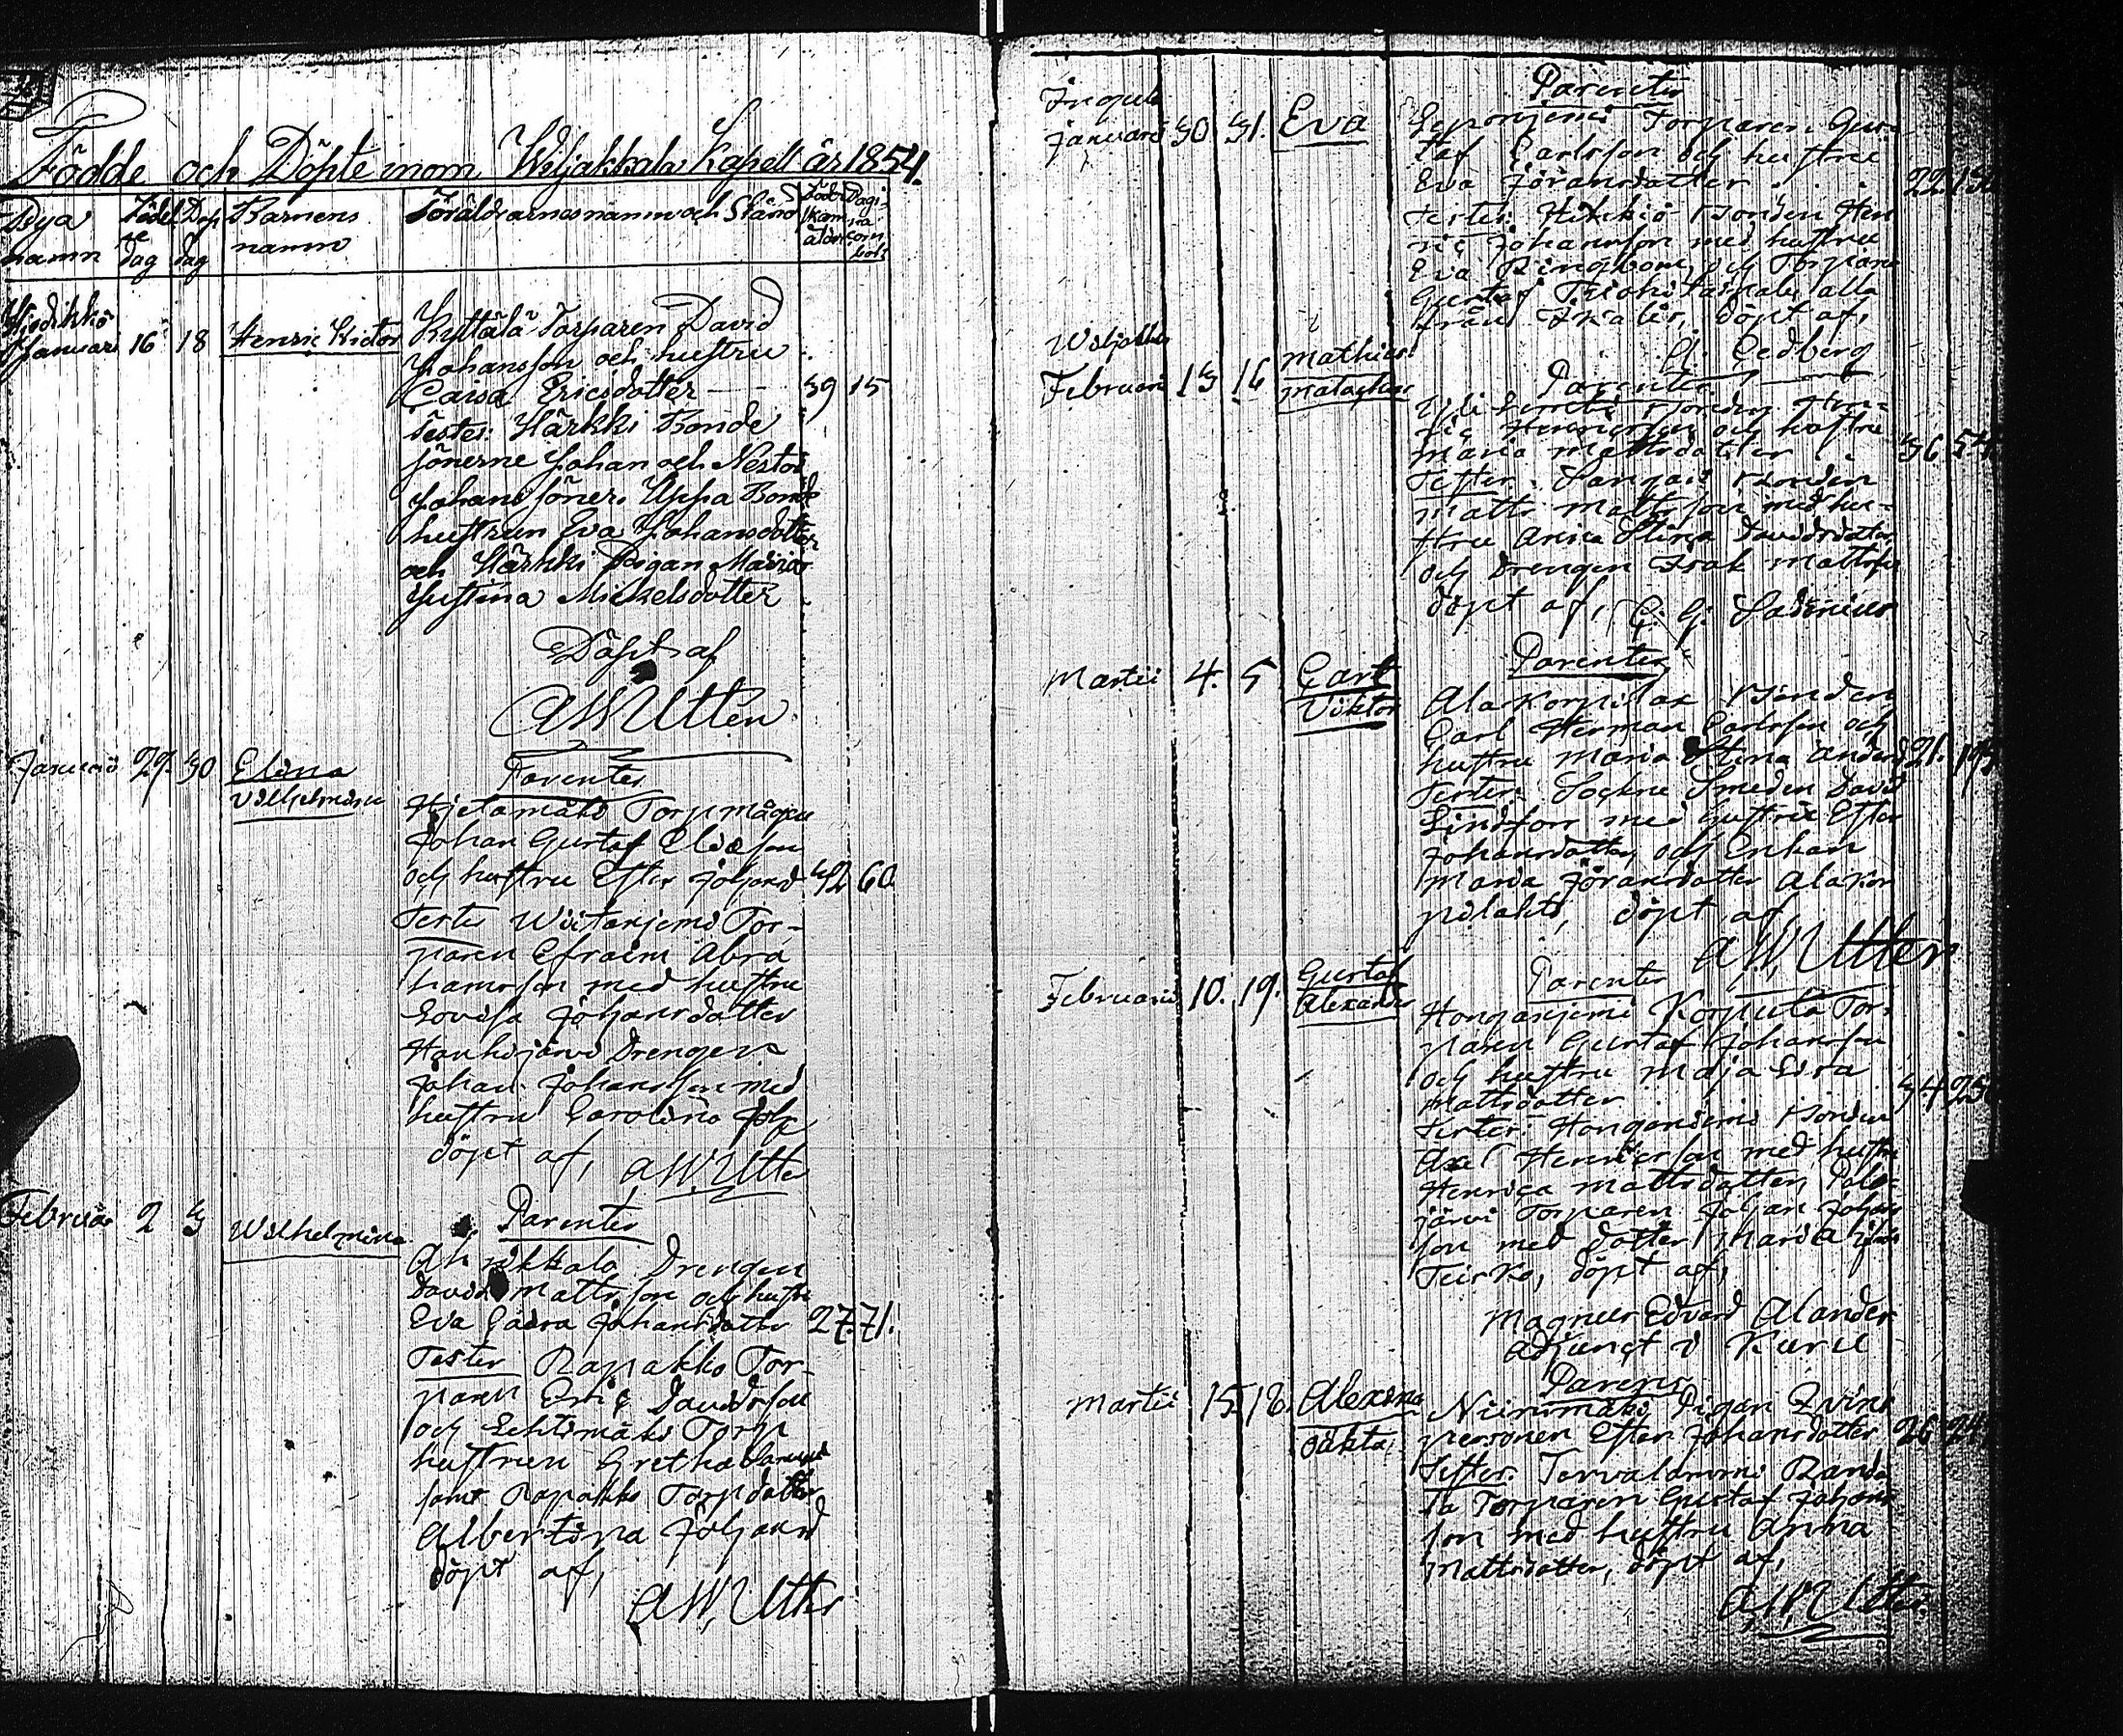 Födde och Döpte inom Wiljakkala Kapell år 1854.
Bya namn
Födelse dag
Döp dag
Barnens namn
Föräldrarnes namn och Stånd
Januari 16 18 Henric Victor
Kyttälä Torparen David
Johansson och hustru
Caisa Ericsdotter 39 15
Testes: Härkki Bonde
sönerne Johan och Nestor
Johans söner. Uppa Bonde
hustrun Eva Johansdotter
och Härkki Pigan Maria
Justina Mickelsdotter
Döpt af
AW Utter
Januari 29. 30 Elina
Vilhelmina
Parentes
Torpmågen
Johan Gustaf Eliasson
och hustru Ester Johansd 42 60.
Testes Wiitaniemi Tor-
paren Efraim Abra
hamsson med hustru
Lovisa Johansdotter
Hanhijärvi Drengen
Johan Johansson med
hustru Carolina Joh
döpt af, AW. Utter
Februari 2 3 Wilhelmina
Parentes
Drengen
David Mattsson och hustr
Eva Johansdotter 27. 71.
Testes Rapakko Tor-
paren Eric Davidsson
och Lehtimäki Torp
hustrun Gretha
samt Rapakko Torpdotter
Albertina Johansd
döpt af,
AW, Utter
Januari 30 31. Eva
Parentes
Leponiemi Torparen Gus-
taf Carlsson och hustru
Eva Göransdotter 22.
Testes: Bonden Hen
ric Johansson med hustru
Eva Ringbom, och Torparen
Gustaf alla
från Ikalis, döpt af,
Cedberg
Februari 13 16 Mathias
Parentes
Bonden Hen-
ric Henricsson och hustru
Maria Mattsdotter 36 54
Testes: Bonden
Matts Mattsson med hu-
stru Anna Stina Davidsdotter
och Drengen Isak Mattsson
döpt af, G. G.
Martii 4. 5 Carl
Viktor
Parentes
Bonden
Carl Herman Carlsson och
hustru Maria Stina Andersd 21.
Testes: Sockne Smeden David
Lindfors med hustru Ester
Johansdotter, och Enkan
Maria Göransdotter Alakor
pilahti, döpt af
AW, Utter
Februari 10. 19. Gustaf
Alexander
Parentes
Honganjemi Korpula Tor-
paren Gustaf Johansson
och hustru Maja Lisa
Mattsdotter 34
Testes: Bonden
Axel Henricsson med hustru
Henrica Mattsdotter,
järvi Torparen Johan Johans
son med dotter Maria
Teisko, döpt af,
Magnus Edvard Alander
adjunct i Kuru
Martii 15. 18. Alexandra
Parens
Niinimäki Pigan Qvins
personen Ester Johansdotter 26
Testes:
Torparen Gustaf Johans
son med hustru Anna
Mattsdotter, döpt af,
AW Utter